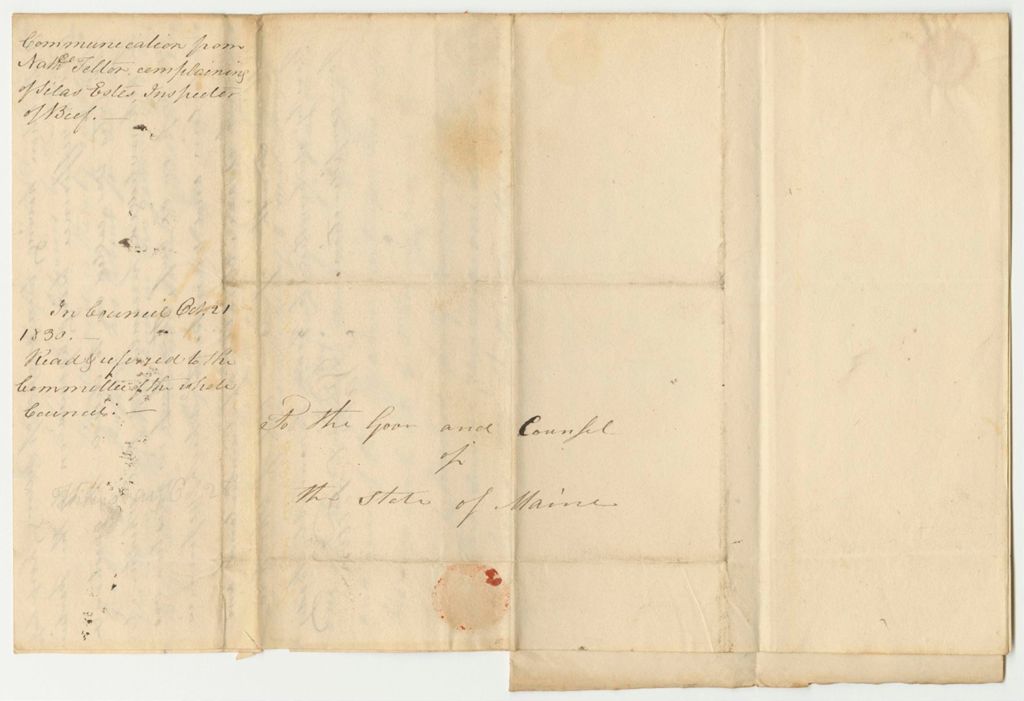 Communication from
Nathl Teltor, complaining
of Silas Estes, Inspector
of Beef. —
In Council Oct. 21
1830. —
Read & referred to the
Committee of the whole
Council. —
To the Govr and Counsel
of
the State of Maine